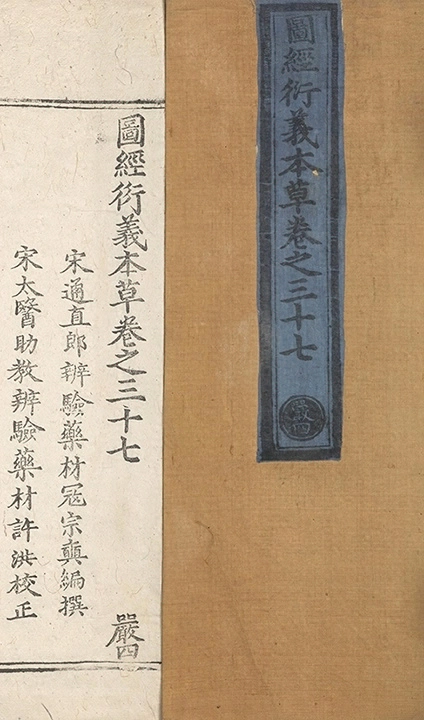 圖經衍義本草卷之三十七
嚴四
圖經衍義本草卷之三十七
嚴四
宋通直郎辨驗藥材寇宗奭編撰
宋太醫助教辨驗藥材許洪校正